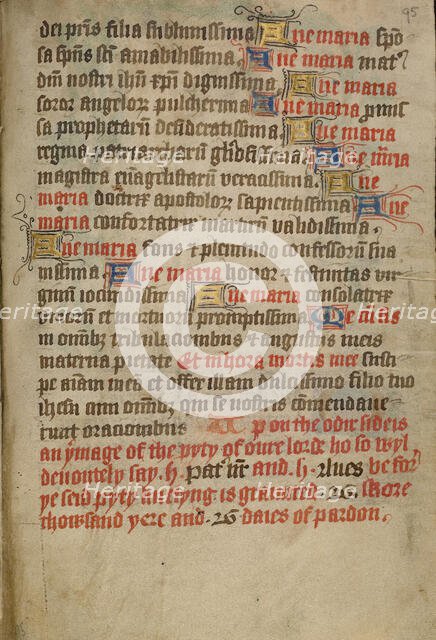 95
dei pr̄is filia sublimissima Aue maria spō
sa sp̄us sc̄i amabilissima. Aue maria matͬ
dn̄i nostri ih̄u xp̄i dignissima Aue maria
soror angeloꝝ pulcherima Aue maria p̄mis
sa prophetarū desideratissima Aue maria
regina patriarcharū gl̄iosissima Aue m̄ria
magistra eu̅agelistarū veracissima. Aue
maria doctrix apostoloꝝ sapientissima Aue
maria confortatrix martirū validissima.
Aue maria fons et plenitudo confessorū sua
uissima. Aue maria honor et festiuitas vir
ginū iocundissima Aue maria consolatrix
viuorū et mortuorū promptissima Me cū sis
in om̄ibꝫ tribulacionibus et angustiis meis
materna pietate Et in hora mortis mee susci
pe aīam meā et offer illam dulcissimo filio tuo
ih̄esu cum om̄ibꝫ qui se nostris comendaue
runt oracionibus
Apon the odre side is
an ymage of the pyty of oure lorde ho so wyl
deuoutely say .ħ. pat̄ n̄r and .ħ. Aues be for
ye seid pyty kneling is graūted .26. skore
thowsand yere and .26 daies of pardon.
Heritage
Heritage
Heritage
Heritage
Heritage
Heritage
©